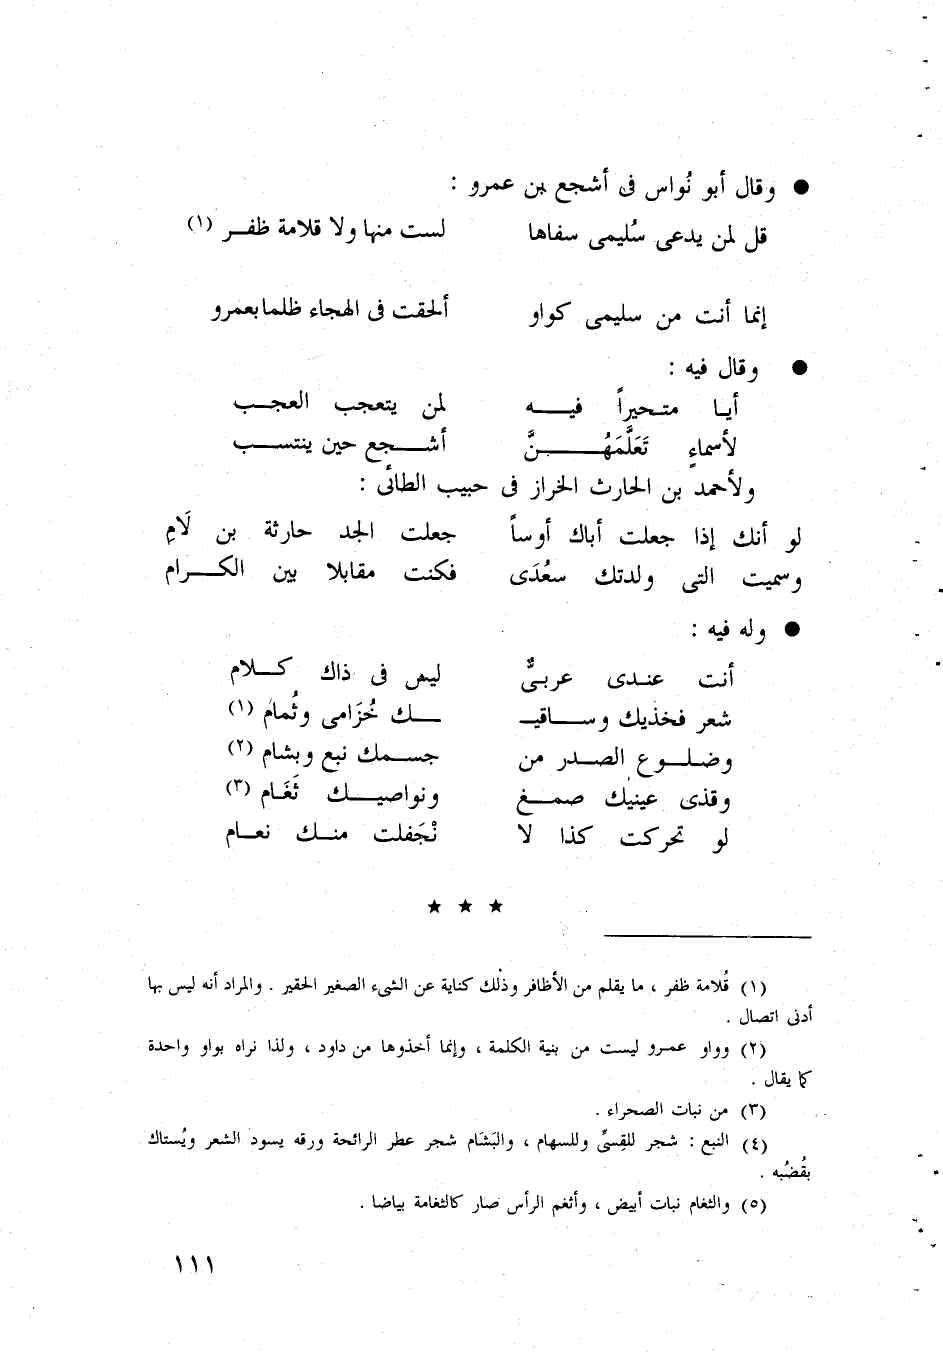 ● وقال أبو نُواس فى أشجع بن عمرو :
قل لمن يدعى سُليمى سفاها لست منها ولا قلامة ظفـر (١)
إنما أنت من سليمى كواو ألحقت فى الهجاء ظلما بعمرو
● وقال فيه :
أيـا متـحيراً فيـــه لمن يتعجب العجـب
لأسماءٍ تَعَلَّمَهُــــنَّ أشــجع حين ينتســب
ولأحمد بن الحارث الخراز فى حبيب الطائى :
لو أنك إذا جعلت أباك أوساً جعلت الجد حارثة بن لَامِ
وسميت التى ولدتك سعُدَى فكنت مقابلا بين الكـــرام
● وله فيه :
أنت عنـدى عربىٌّ ليس فى ذاك كـــلام
شعر فخذيك وســاقيـ ــك خُزَامى وثُمام (١)
وضلــوع الصـدر من جســمك نبع وبشام (٢)
وقذى عينيك صمـــغ ونواصيـــك ثَغَام (٣)
لو تحركت كذا لا نْجَفلت منـك نعـام
★ ★ ★
(١) قُلامة ظفر ، ما يقلم من الأظافر وذلك كناية عن الشىء الصغير الحقير . والمراد أنه ليس بها
أدنى اتصال .
(٢) وواو عمـرو ليست من بنية الكلمة ، وإنما أخذوها من داود ، ولذا نراه بواو واحدة
كما يقال .
(٣) من نبات الصحراء .
(٤) النبع : شجر للقِسىِّ وللسهام ، والبَشَام شجر عطر الرائحة ورقه يسود الشعر ويُستاك
بقُضبُه .
(٥) والثغام نبات أبيض ، وأثغم الرأس صار كالثغامة بياضا .
١١١